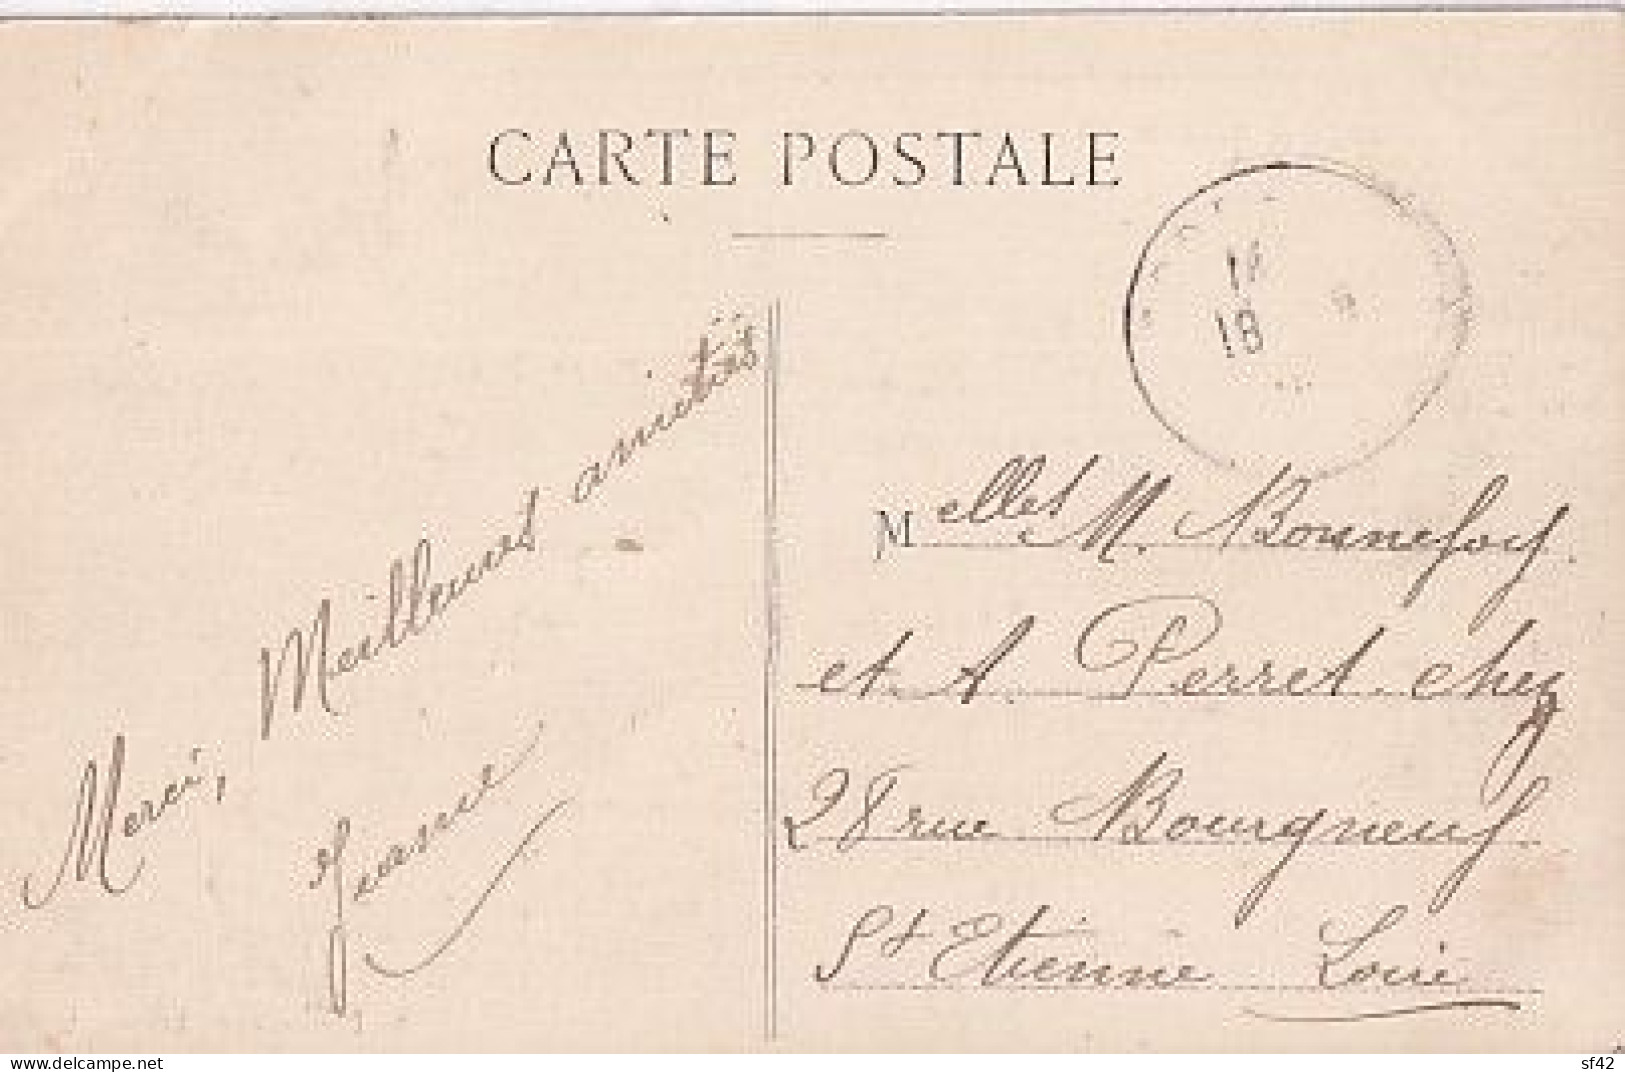 CARTE POSTALE
18
Merci, Meilleures amitiés
Jeanne
Melles M. Bonnefoy.
et A. Perret chez
28 rue Bourgneuf
St Etienne Loire
www.delcampe.net
sf42